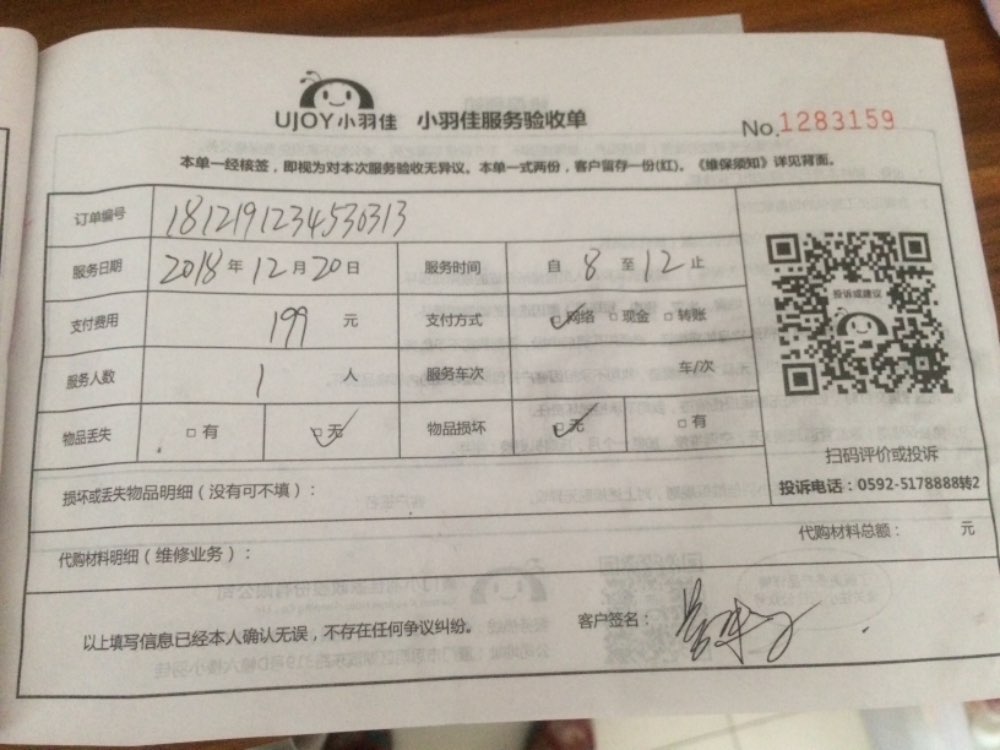 UJOY小羽佳 小羽佳服务验收单
No.1283159
本单一经核签，即视为对本次服务验收无异议。本单一式两份，客户留存一份(红)。《维保须知》详见背面。
订单编号 1812191234530313
服务日期 2018年12月20日 服务时间 自8至12止
支付费用 199元 支付方式 网络 □现金 □转账
服务人数 1人 服务车次 车/次
物品丢失 □有 □无 物品损坏 □无 □有
投诉或建议
扫码评价或投诉
投诉电话：0592-5178888转2
损坏或丢失物品明细（没有可不填）：
代购材料明细（维修业务）： 代购材料总额： 元
以上填写信息已经本人确认无误，不存在任何争议纠纷。 客户签名：